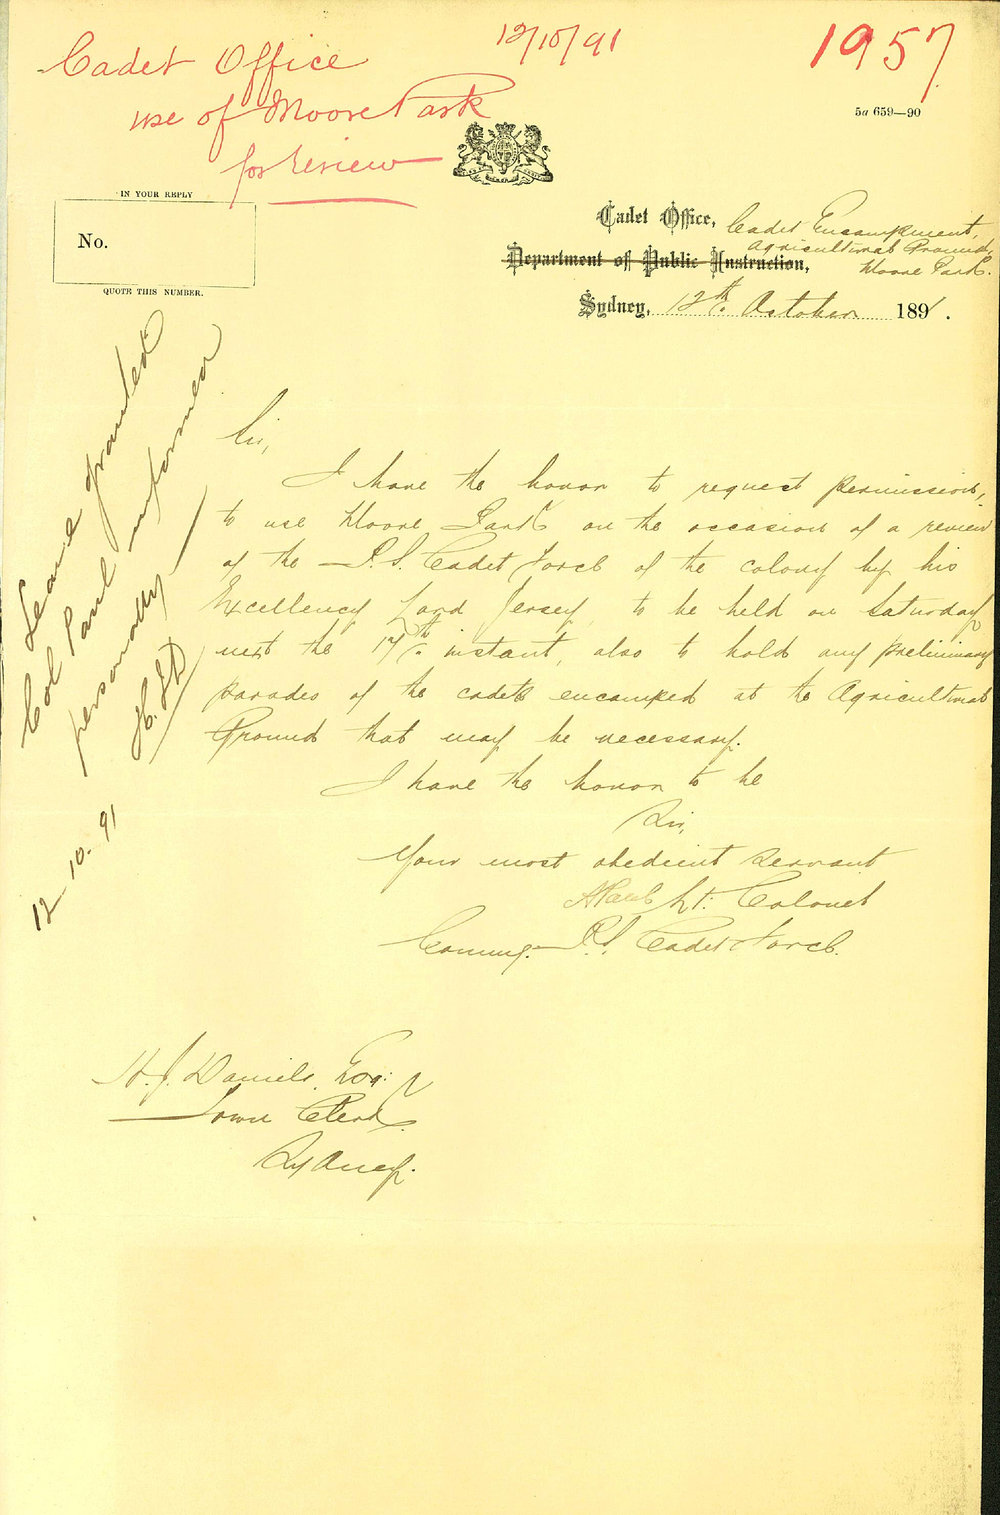 Cadet Office
use of Moore Park
for review
12/10/91
1957
5a 659—90
IN YOUR REPLY
No.
QUOTE THIS NUMBER.
Cadet Office, Cadet Encampment,
Agricultural Ground,
Department of Public Instruction, Moore Park.
Sydney, 12th. October 1891.
Leave granted
Col Paul informed
personally
12.10.91
Sir,
I have the honor to request permission,
to use Moore Park on the occasion of a review
of the P.S. Cadet Force of the colony by his
Excellency Lord Jersey, to be held on Saturday
next the 17th. instant, also to hold any preliminary
parades of the cadets encamped at the Agricultural
Ground that may be necessary.
I have the honor to be
Sir,
Your most obedient servant
Paul Lt: Colonel
Commg. P.S. Cadet Force.
H. J. Daniels, Esq:
Town Clerk,
Sydney.